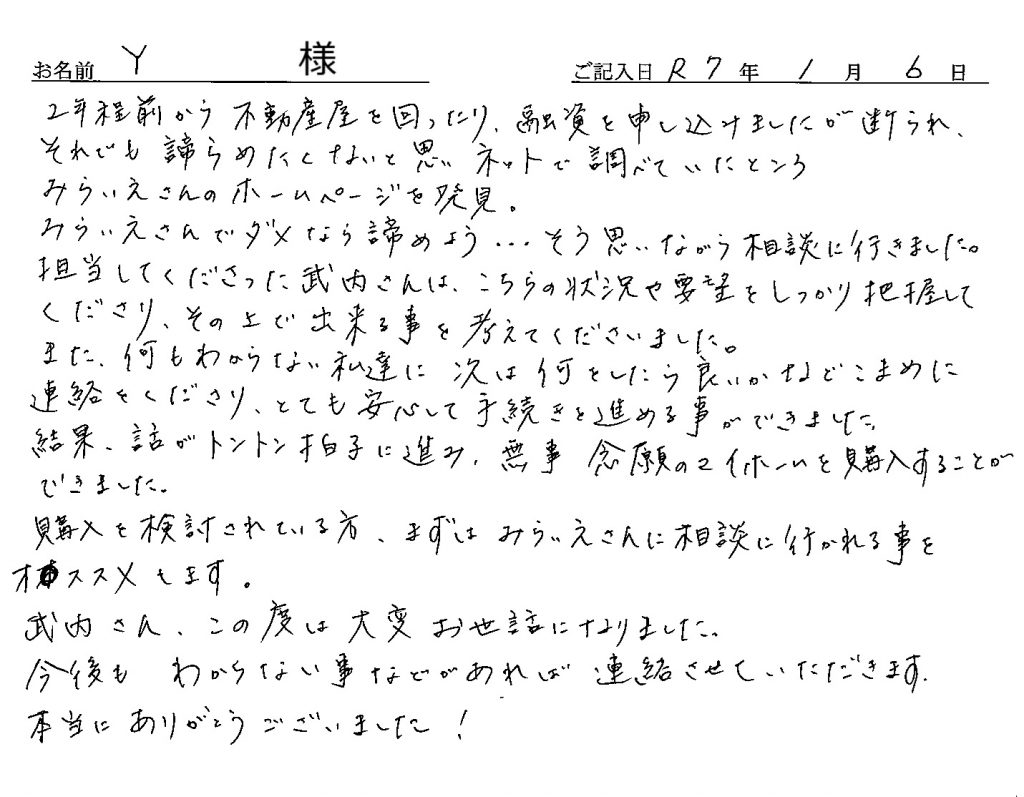 お名前 Y 様 ご記入日 R7年 1月 6日
2年程前から不動産屋を回ったり、融資を申し込みましたが断られ、
それでも諦らめたくないと思いネットで調べていたところ
みらいえさんのホームページを発見。
みらいえさんでダメなら諦めよう...そう思いながら相談に行きました。
担当してくださった武内さんは、こちらの状況や要望をしっかり把握して
くださり、その上で出来る事を考えてくださいました。
また、何もわからない私達に次は何をしたら良いかなどこまめに
連絡をくださり、とても安心して手続きを進める事ができました。
結果、話がトントン拍子に進み、無事念願のマイホームを購入することが
できました。
購入を検討されている方、まずはみらいえさんに相談に行かれる事を
オススメします。
武内さん、この度は大変お世話になりました。
今後もわからない事などがあれば連絡させていただきます。
本当にありがとうございました!